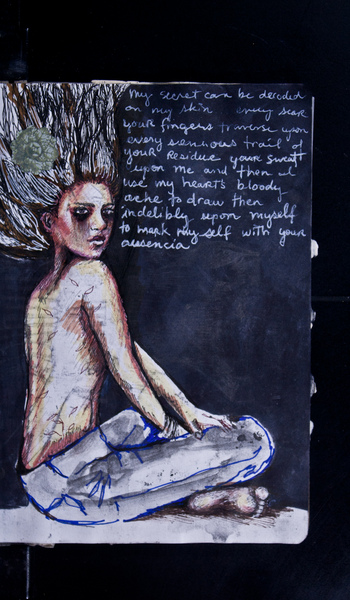 My secret can be decoded
on my skin every scar
your fingers traverse upon
every sensuous trail of
your residue your sweat
upon me and then I
use my heart's bloody
ache to draw then
indelibly upon myself
to mark my self with your
ausencia